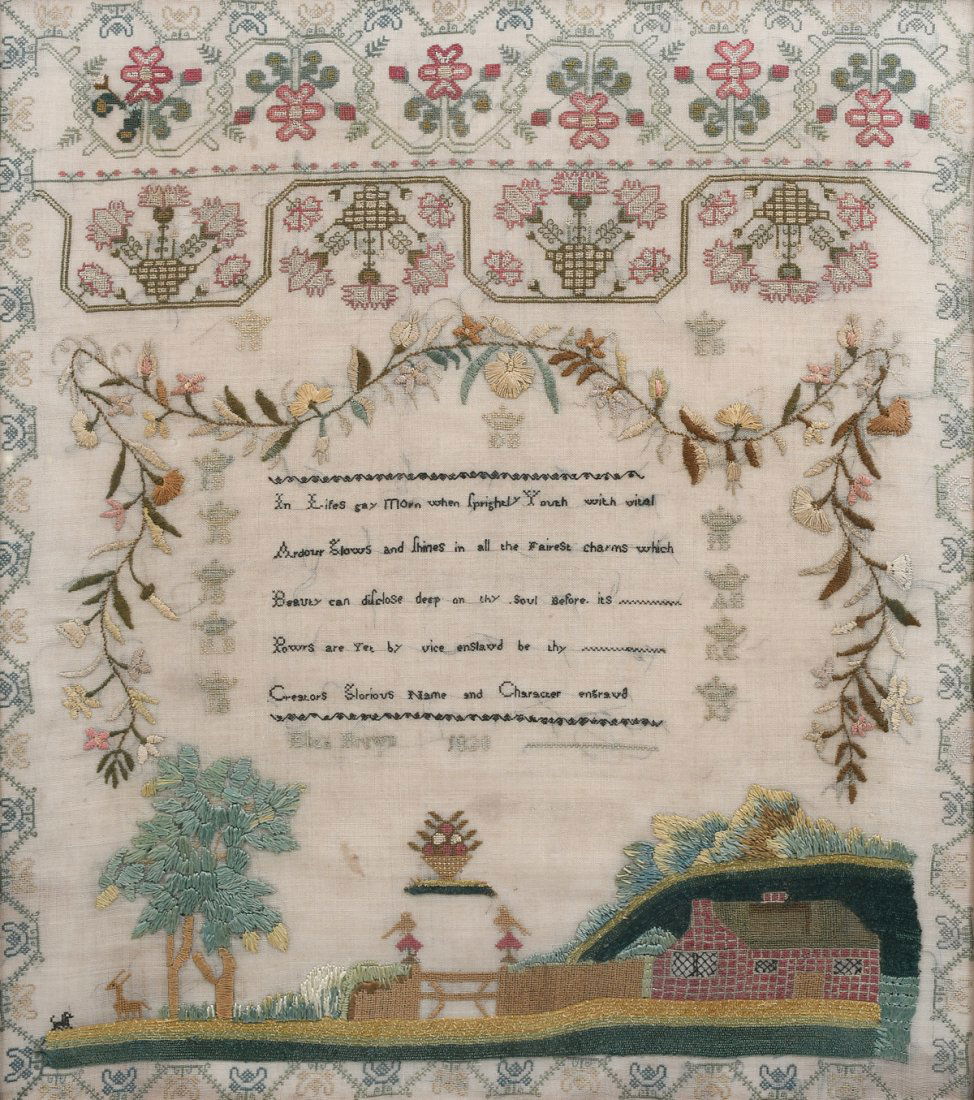 In Lifes gay Morn when sprightly Youth with vital
Ardour Glows and shines in all the Fairest charms which
Beauty can disclose deep on thy soul Before its
Powrs are Yet by vice enslavd be thy
Creators Glorious Name and Character engravd
Brown 1830